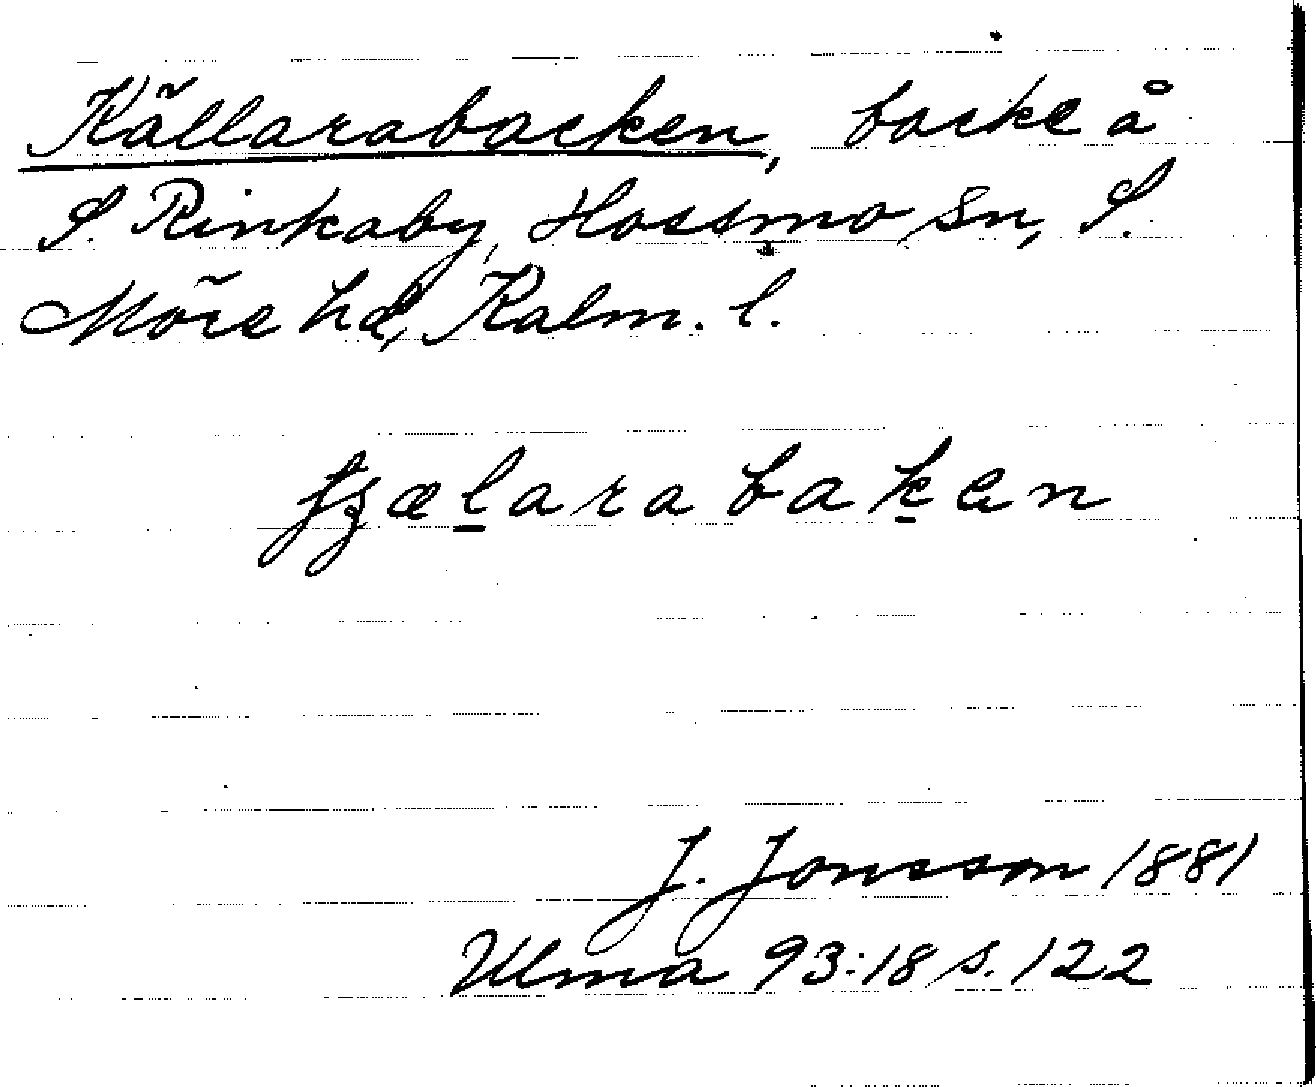 Källarabacken, backe å
S. Rinkaby, Hossmo sn, S.
Möre hd, Kalm. l.
fʒæl̲arabak̲en
J. Jonsson 1881
Ulma 93:18 s. 122